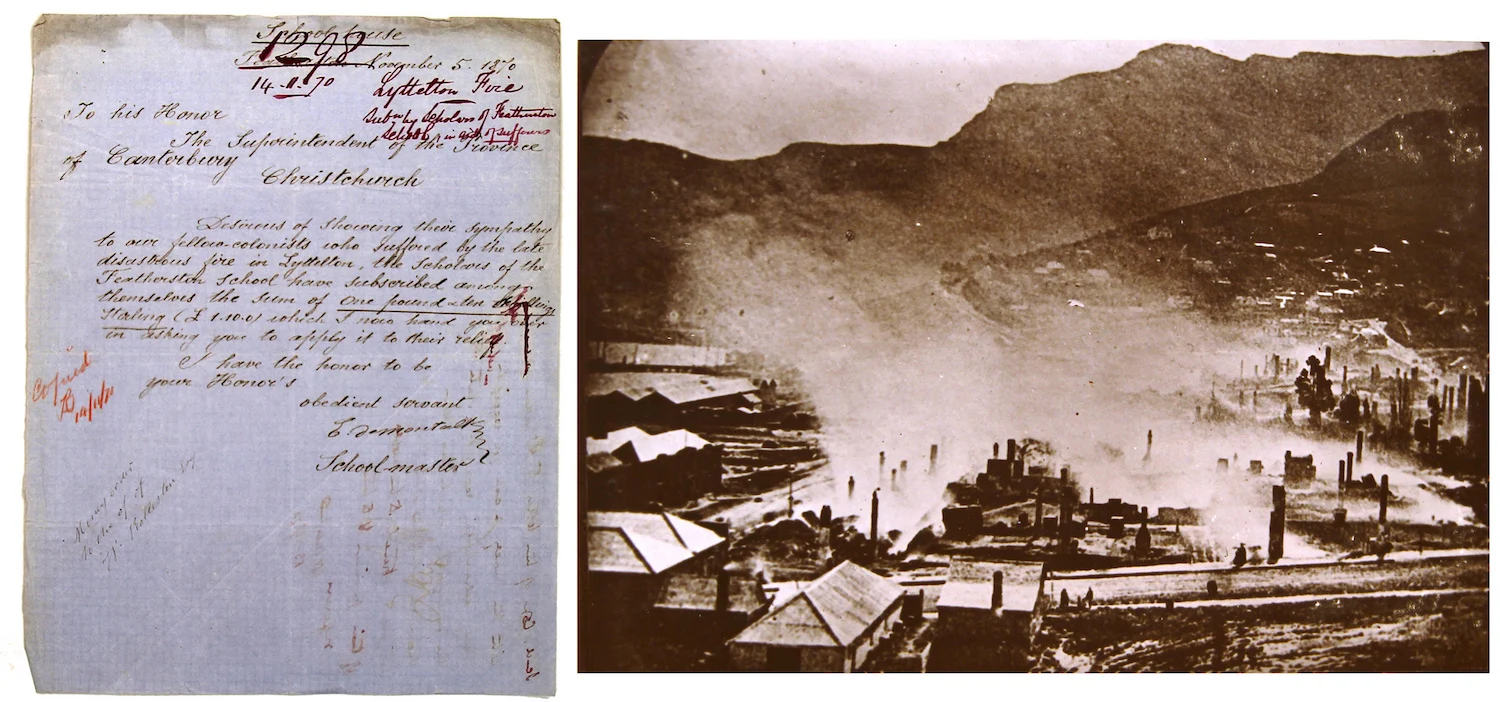 School House
1298
Featherston November 5. 1870
14-11-70
Lyttelton Fire
Subn by Scholars of Featherston
School in aid of sufferers
To his Honor
The Superintendent of the Province
of Canterbury
Christchurch
Desirous of showing their sympathy
to our fellow-colonists who suffered by the late
disastrous fire in Lyttelton, the Scholars of the
Featherston School have subscribed among
themselves the sum of one pound & ten shillings
Sterling (£ 1.10.0) which I now hand you over
in asking you to apply it to their relief.
I have the honor to be
your Honor's
obedient servant.
E. de Montalk
School-master
Copied
14/11/70
Money order
to the of
W. Rolleston